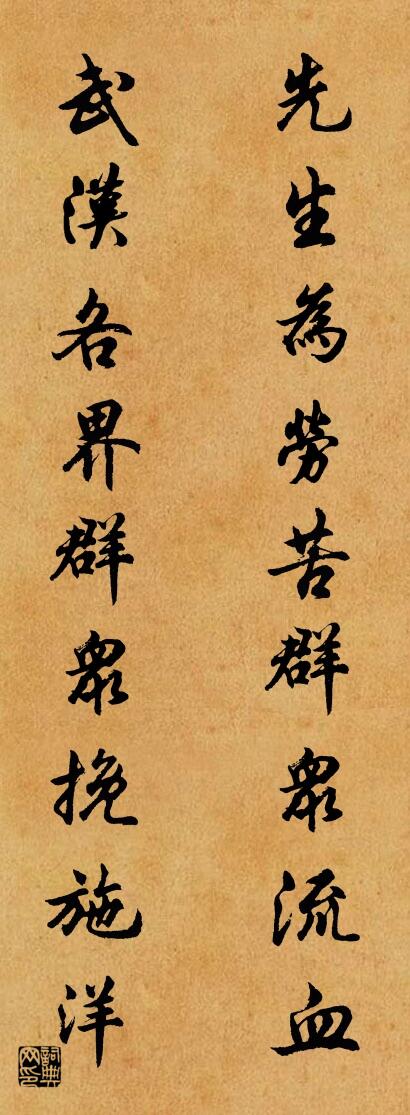 先生為勞苦群眾流血
武漢各界群眾挽施洋
詞典網印